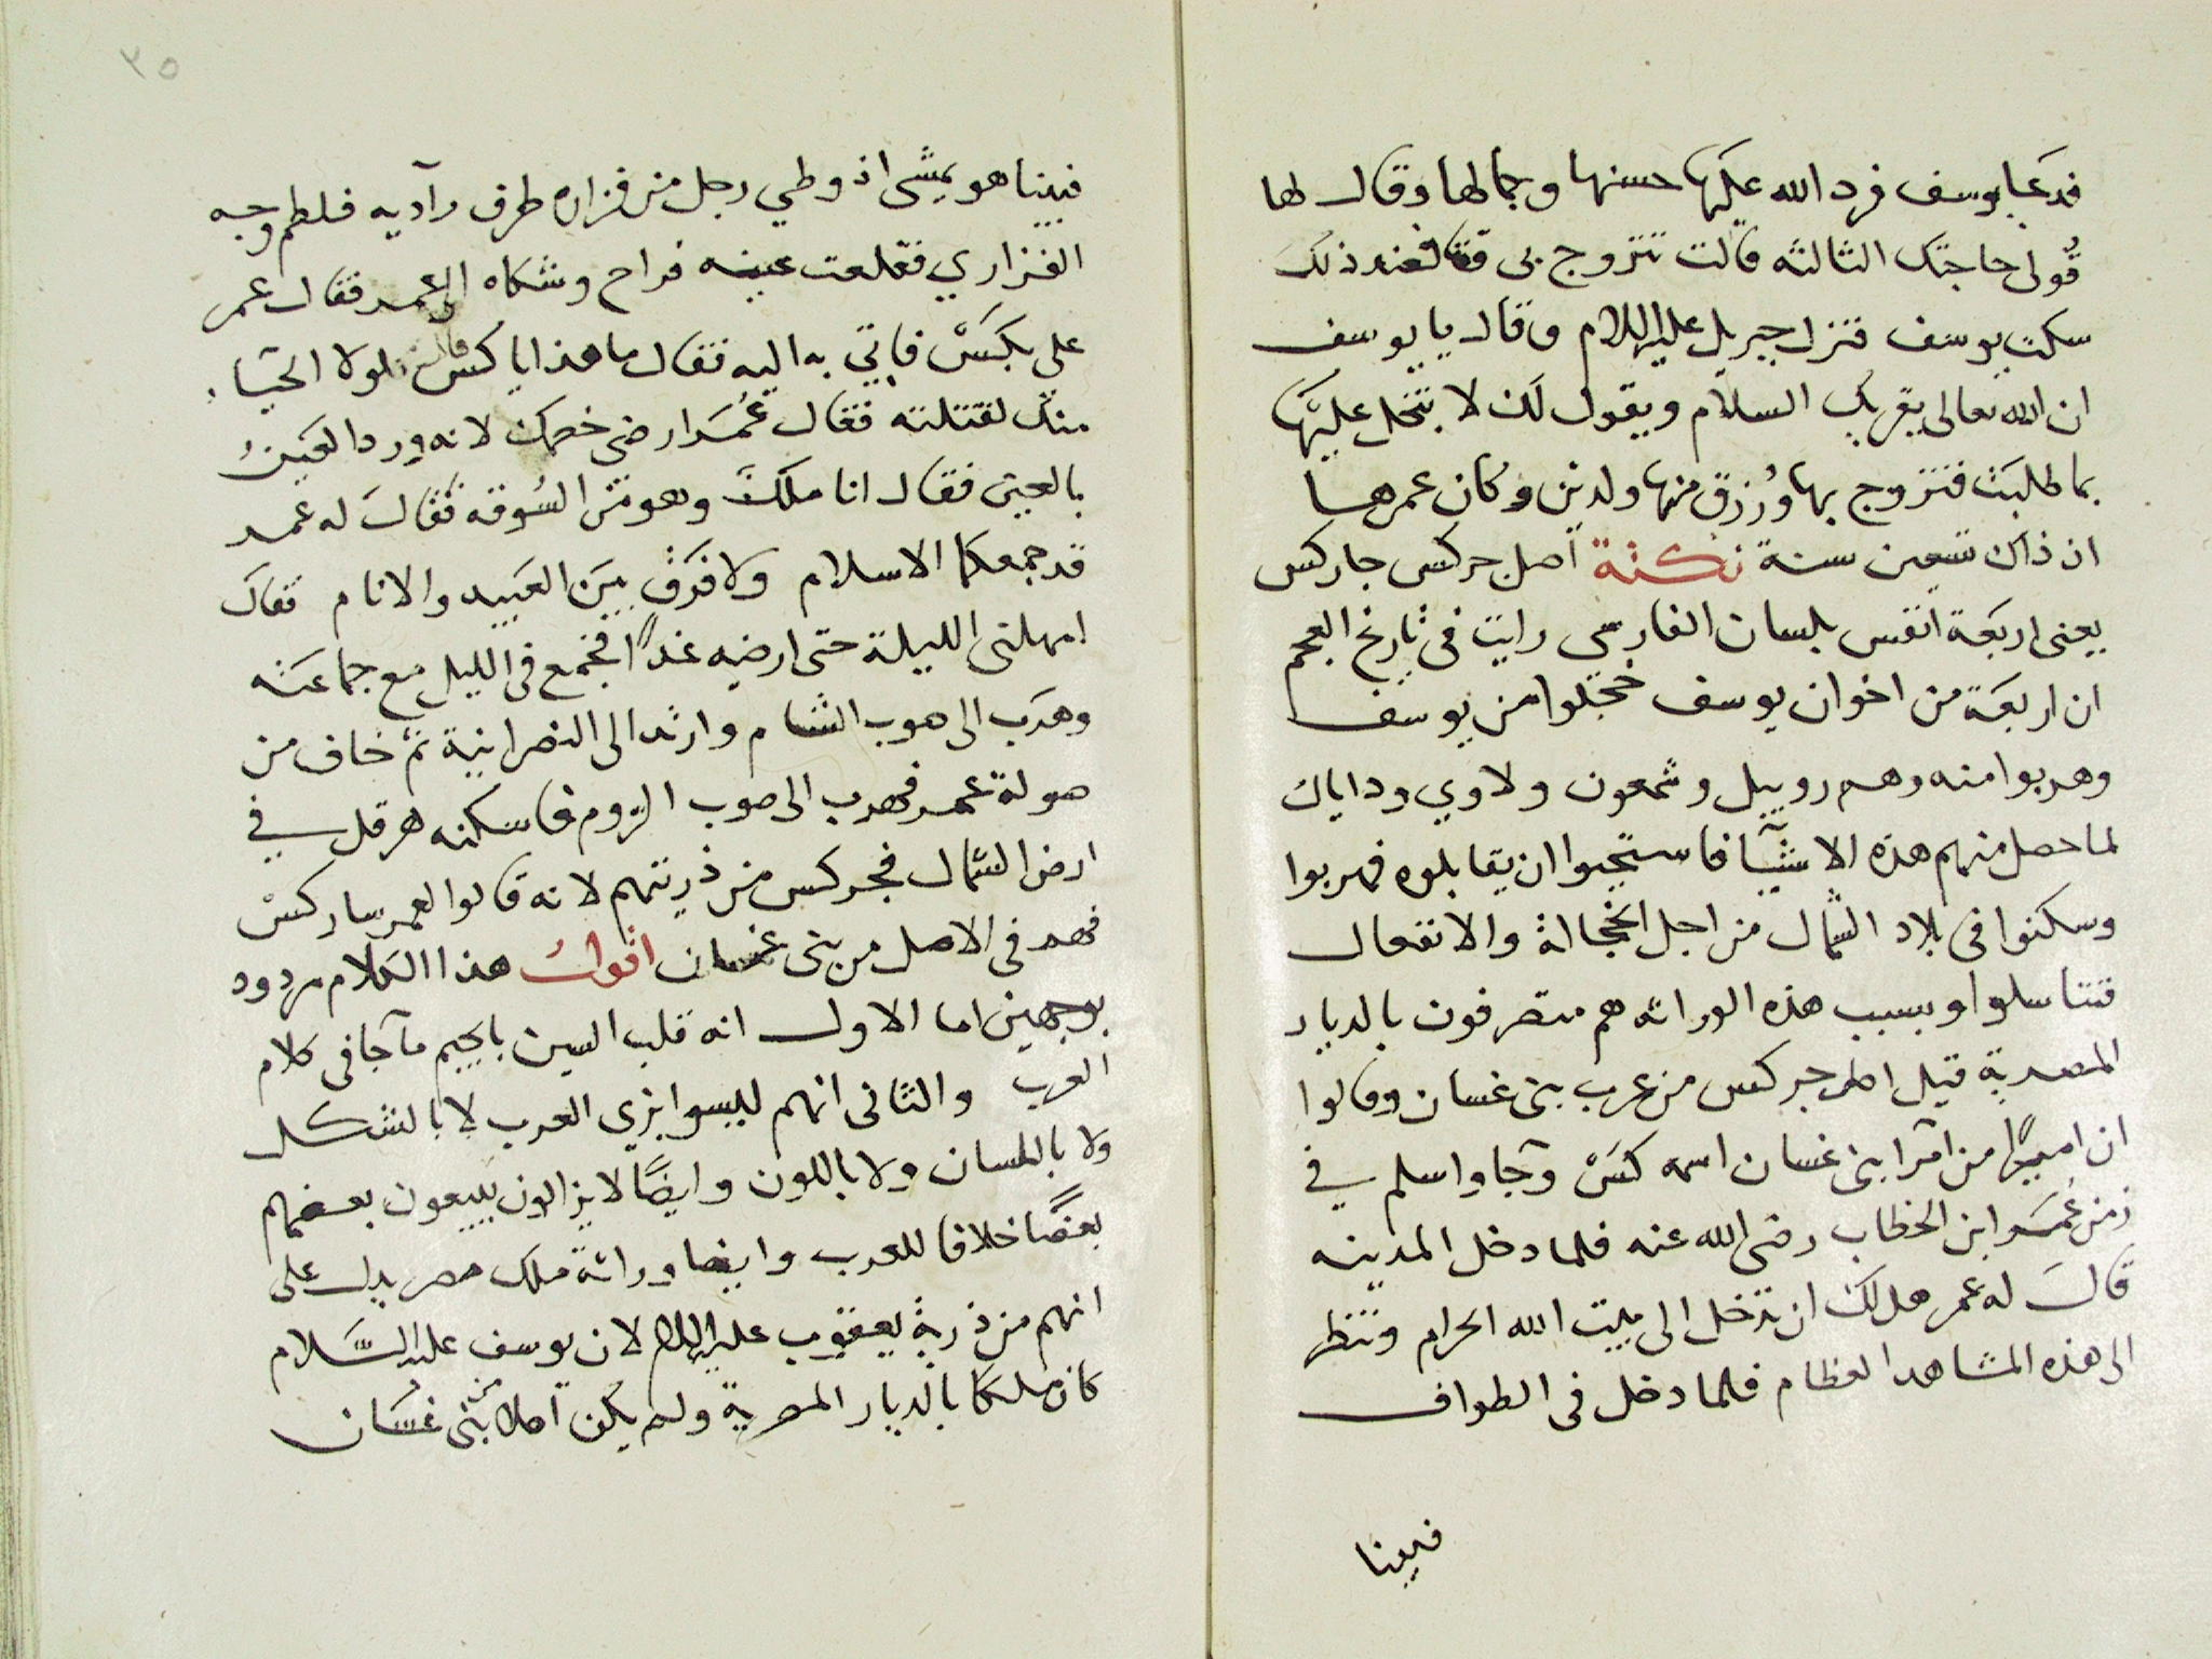 فدعا يوسف فرد الله عليها حسنها وجمالها وقال لها
قولى حاجتك الثالثه قالت تتزوج بى فعند ذلك
سكت يوسف فنزل جبريل عليه السلام وقال يا يوسف
ان الله تعالى يقريك السلام ويقول لك لا تبخل عليها
بما طلبت فتزوج بها ورزق منها ولدين وكان عمرها
اذ ذاك تسعين سنة نكتة اصل جركس جاركس
يعنى اربعة انفس بلسان الفارسى رايت فى تاريخ العجم
ان اربعة من اخوان يوسف خجلوا من يوسف
وهربوا منه وهم روبيل وشمعون ولاوي ودايان
لما حصل منهم هذه الاشيآ فاستحيوا ان يقابلوه فهربوا
وسكنوا فى بلاد الشمال من اجل الخجالة والانفعال
فتناسلوا وبسبب هذه الوراثه هم متصرفون بالديار
المصرية قيل اصل جركس من عرب بنى غسان وقالوا
ان اميرًا من امرآ بنى غسان اسمه كس وجآ واسلم في
زمن عمر ابن الخطاب رضى الله عنه فلما دخل المدينه
قال له عمر هل لك ان تدخل الى بيت الله الحرام وتنظر
الى هذه المشاهد العظام فلما دخل فى الطواف
فبينا
٣٥
فبينا هو يمشى اذ وطي رجل من فزاره طرف ردآيه فلطم وجه
الفزاري فقلعت عينه فراح وشكاه الى عمر فقال عمر
على بكس فاتي به اليه فقال ما هذا يا كس قال لولا الحيآ
منك لقتلته فقال عمر ارضى خصمك لانه ورد العين
بالعين فقال انا ملك وهو من السوقه فقال له عمر
قد جمعكما الاسلام ولا فرق بين العبيد والانام فقال
امهلنى الليلة حتى ارضيه غدًا فجمع فى الليل مع جماعته
وهرب الى صوب الشام وارتد الى النصرانية ثم خاف من
صولة عمر فهرب الى صوب الروم فاسكنه هرقل في
ارض الشمال فجركس من ذريتهم لانه قالوا لعمر سار كس
فهم فى الاصل من بنى غسان اقول هذا الكلام مردود
بوجهين اما الاول انه قلب السين بالجيم ما جآ فى كلام
العرب والثانى انهم ليسوا بزي العرب لا بالشكل
ولا باللسان ولا باللون وايضًا لا يزالون يبيعون بعضهم
بعضًا خلافا للعرب وايضا وراثة ملك مصر يدل على
انهم من ذرية يعقوب عليه السلام لان يوسف عليه السلام
كان ملكا بالديار المصرية ولم يكن اصلا من بنى غسان